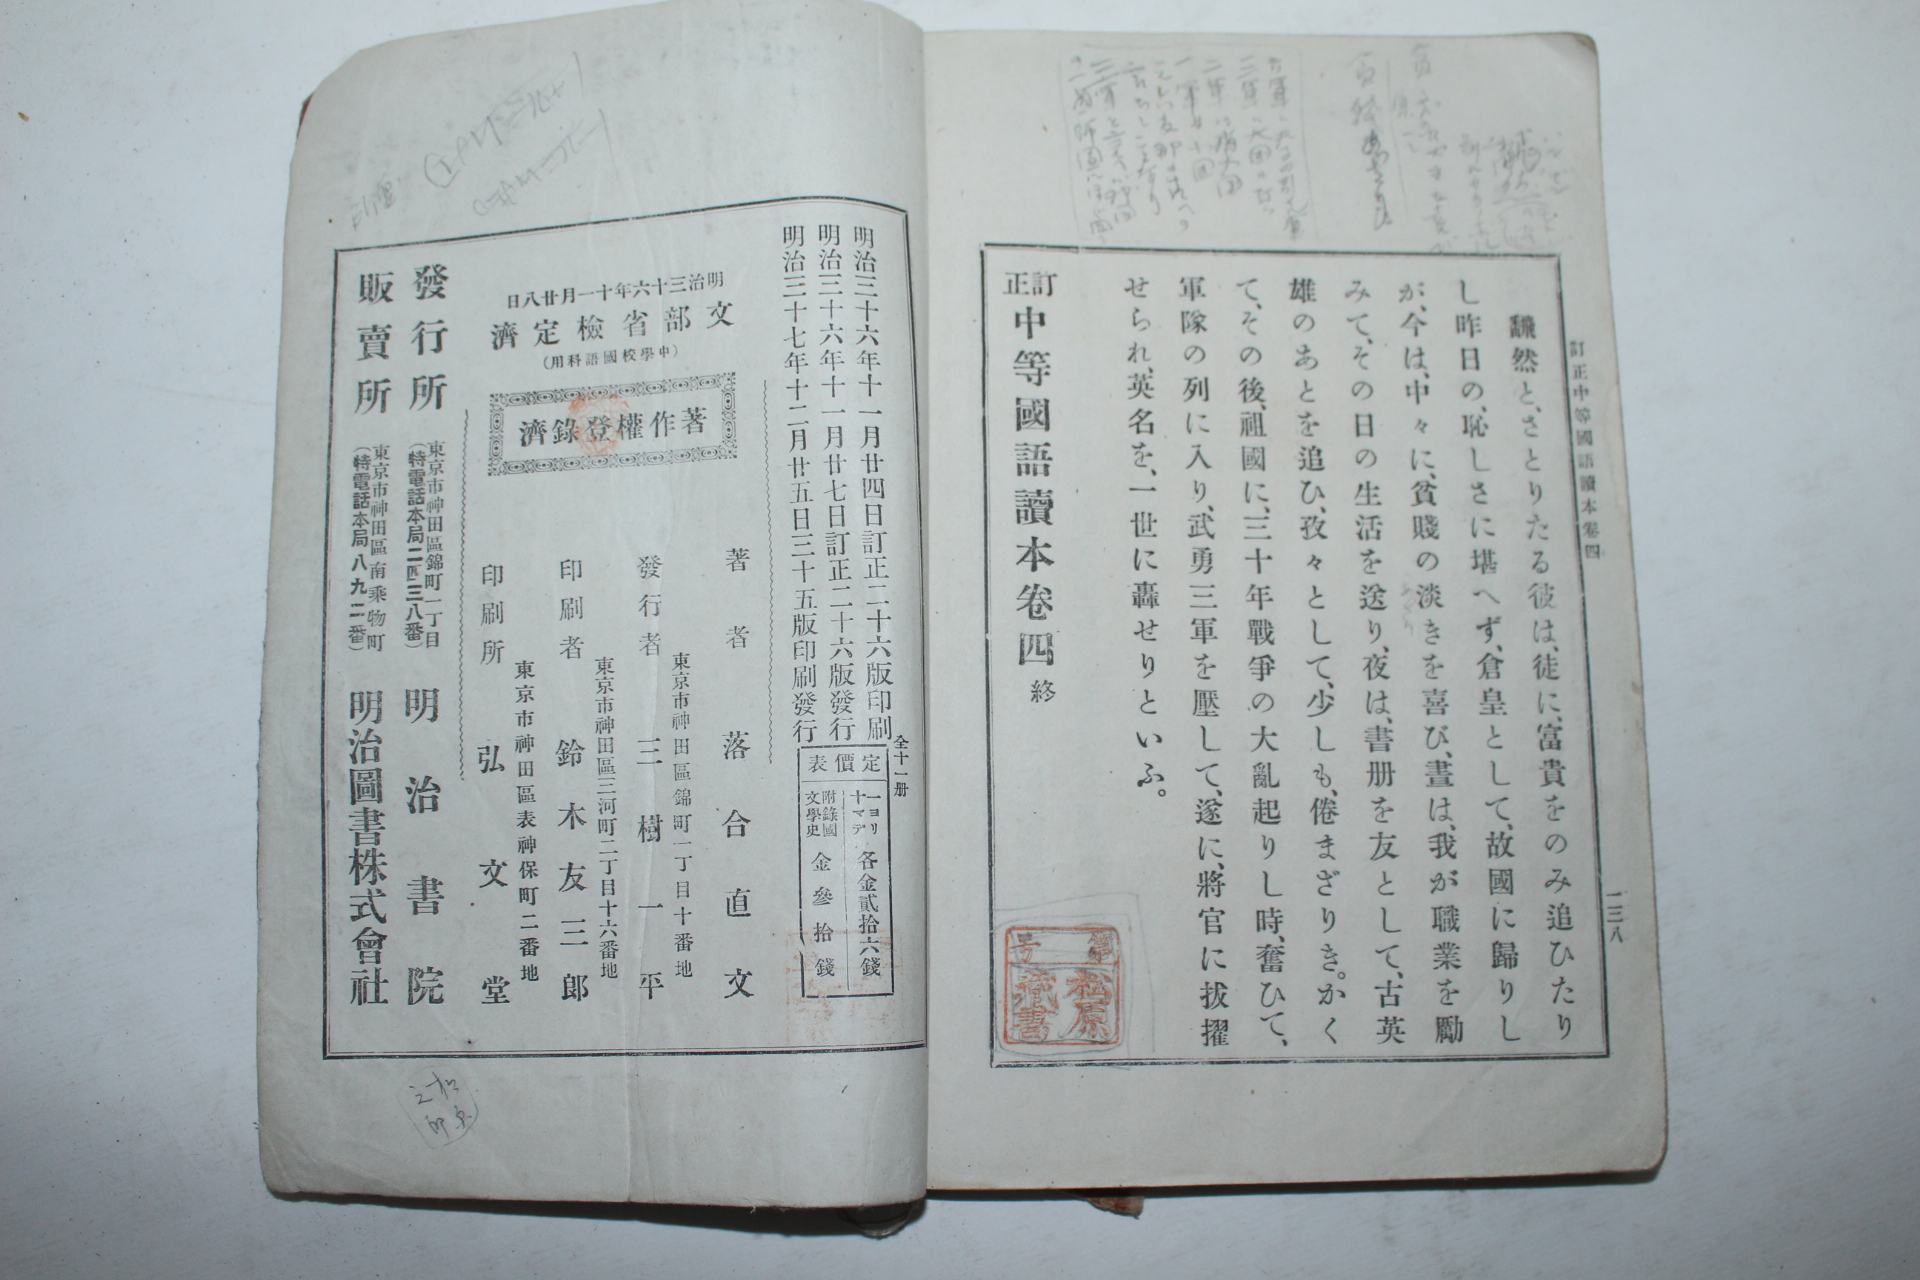 訂正中等國語讀本卷四
二三八
飜然と、さとりたる彼は、徒に、富貴をのみ追ひたり
し昨日の、恥しさに堪へず、倉皇として、故國に歸りし
が、今は、中々に、貧賤の淡きを喜び、晝は、我が職業を勵
みて、その日の生活を送り、夜は、書册を友として、古英
雄のあとを追ひ、孜々として、少しも、倦まざりき。かく
て、その後、祖國に、三十年戰爭の大亂起りし時、奮ひて、
軍隊の列に入り、武勇三軍を壓して、遂に、將官に拔擢
せられ、英名を、一世に轟せりといふ。
訂正中等國語讀本卷四終
第
號
松原
藏書
全十一册
明治三十六年十一月廿四日訂正二十六版印刷
明治三十六年十一月廿七日訂正二十六版發行
明治三十七年十二月廿五日三十五版印刷發行
定價表
一ヨリ十マデ 各金貳拾六錢
附錄國文學史 金參拾錢
明治三十六年十一月廿八日
文部省檢定濟
(中學校國語科用)
著作權登錄濟
著者 落合直文
東京市神田區錦町一丁目十番地
發行者 三樹一平
東京市神田區三河町二丁目十六番地
印刷者 鈴木友三郎
東京市神田區表神保町二番地
印刷所 弘文堂
東京市神田區錦町一丁目
(特電話本局二四三八番)
發行所 明治書院
東京市神田區南乘物町
(特電話本局八九二番)
販賣所 明治圖書株式會社